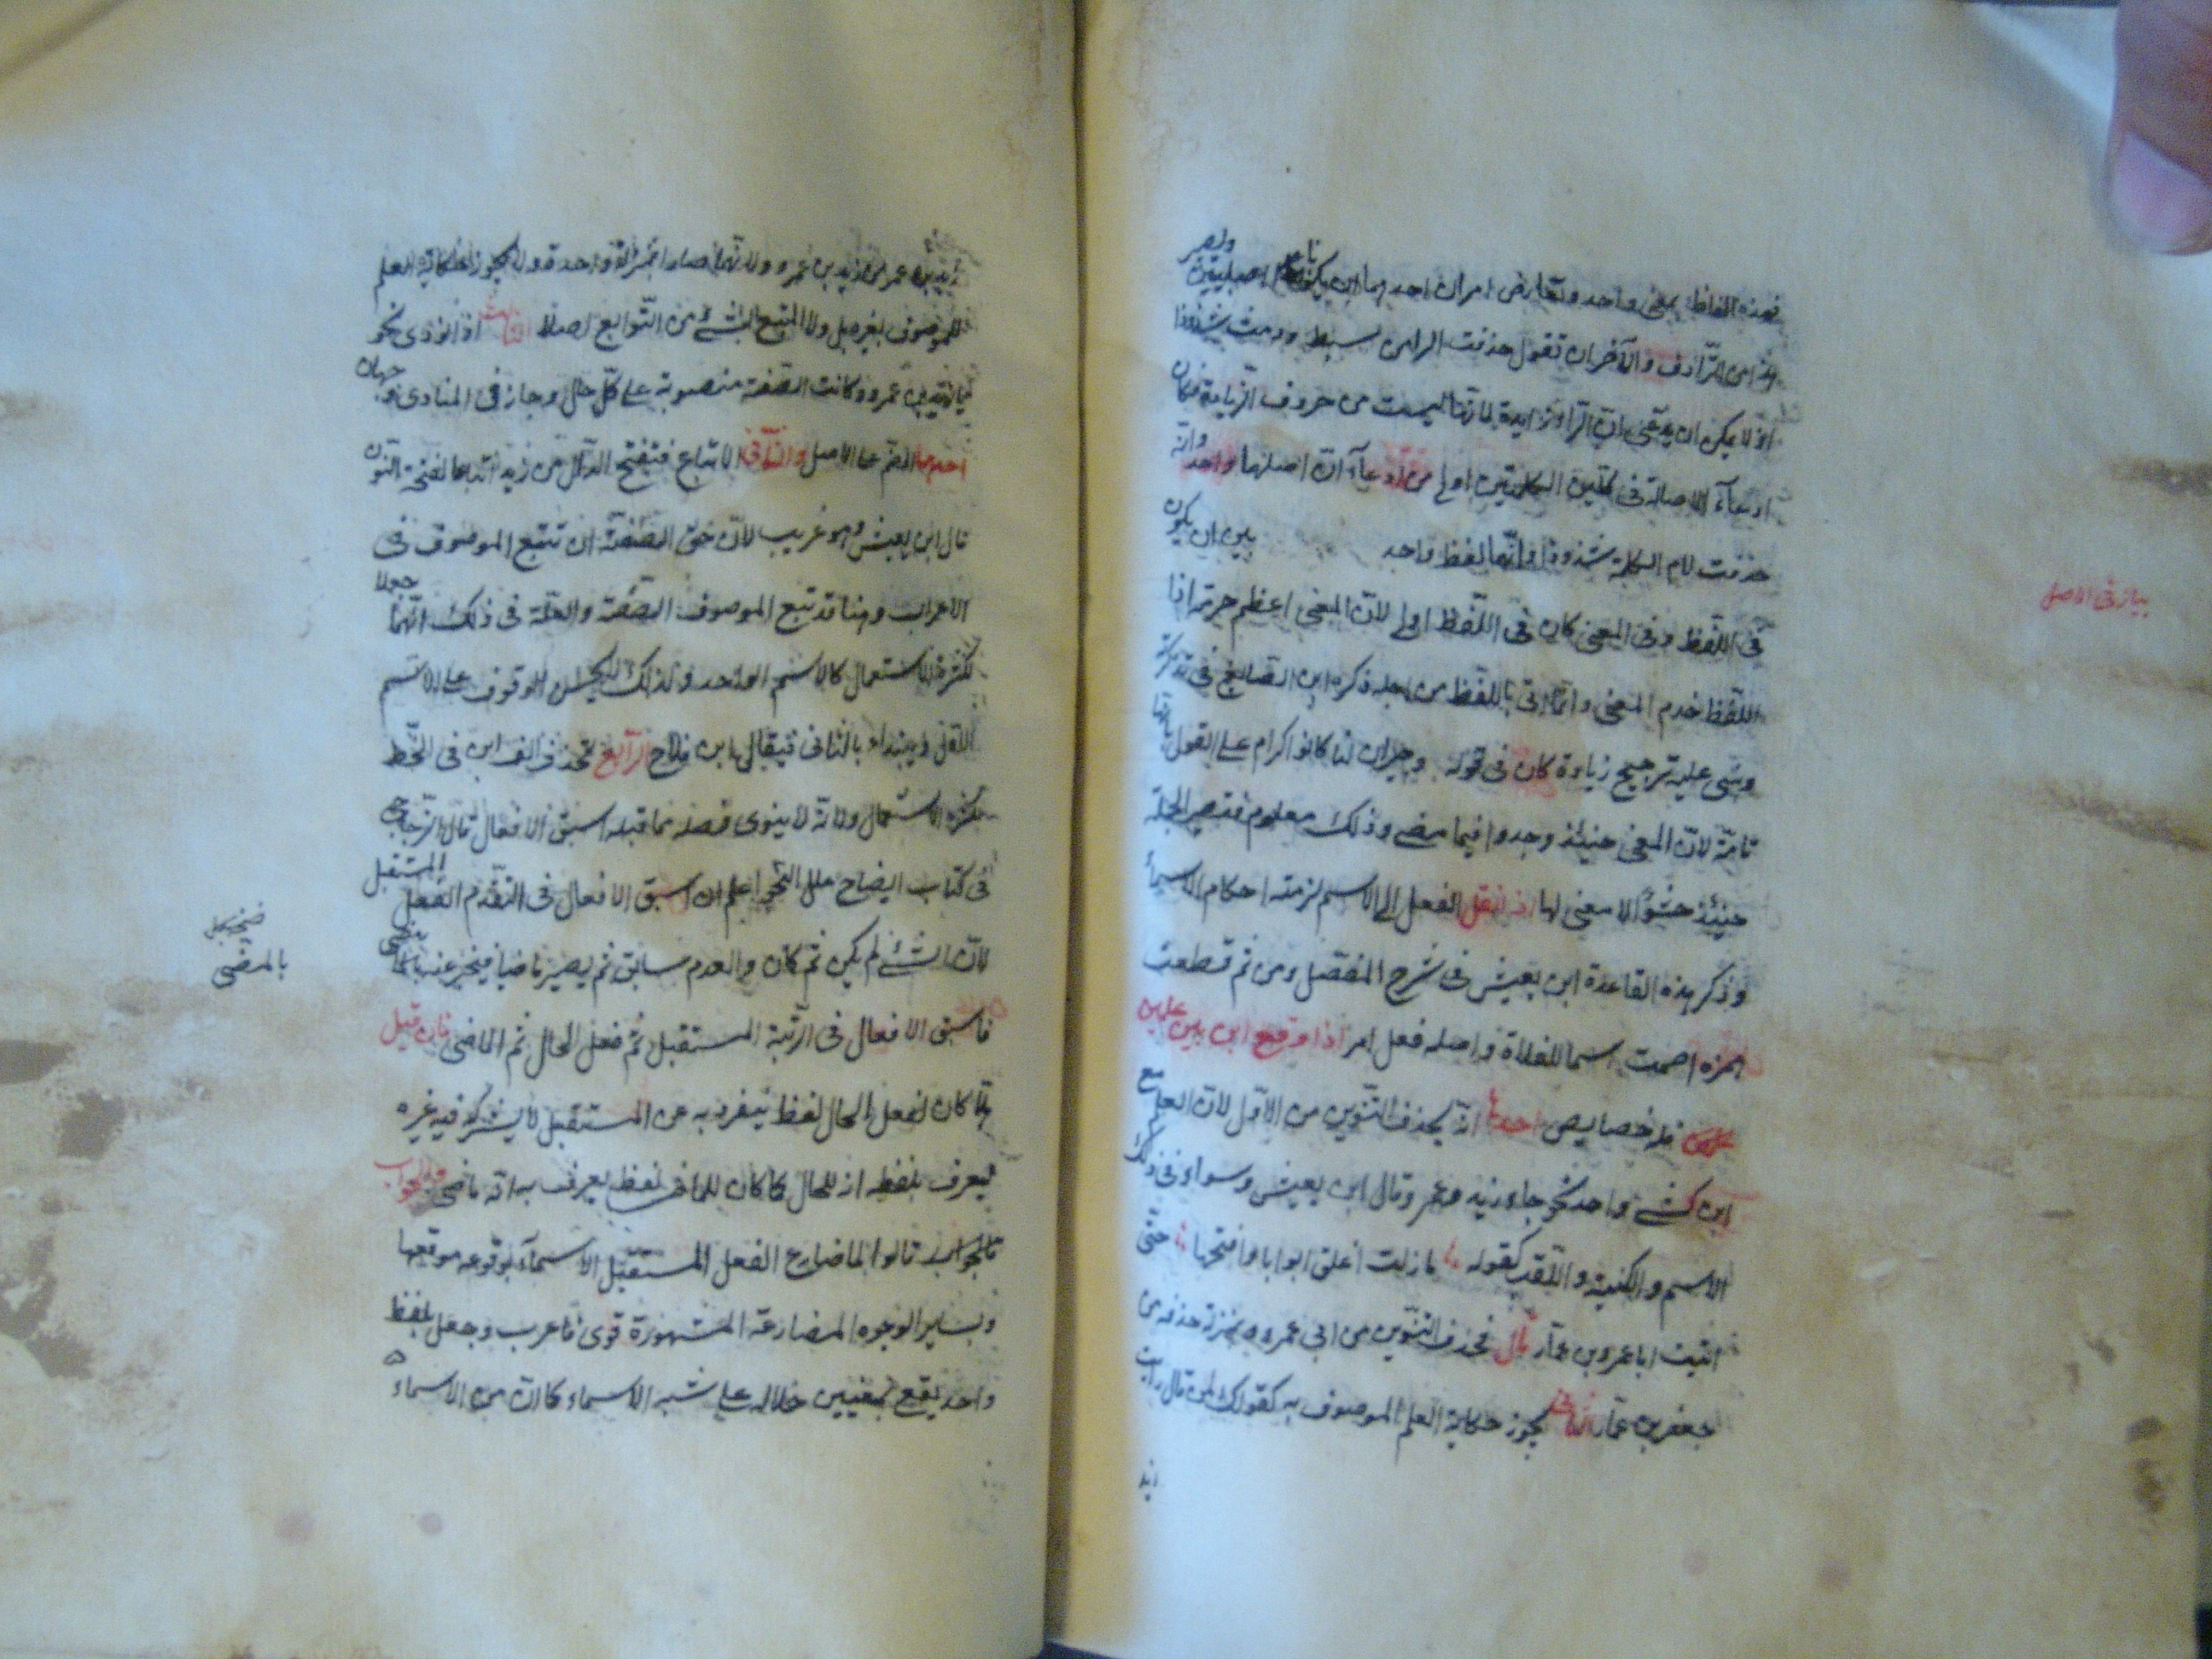 فهذه الفاظ بمعنى واحد وتعارض امران احدهما ان يكونا اصليين
من الترادف والآخر ان تقول حذفت الرا من سبطر ودمث شذوذا
اذ لا يمكن ان يدعى ان الرا زايدة لانها ليست من حروف الزيادة فكان
ادعاء الاصالة فى الكلمتين اولى من ادعاء ان اصلهما واحد وانه
حذفت لام الكلمة شذوذا وانهما لفظ واحد بين ان يكون
فى اللفظ وفى المعنى كان فى اللفظ اولى لان المعنى اعظم حرمة اذا
اللفظ خدم المعنى وانما اتى باللفظ من اجله ذكره ابن الصايغ فى تذكرته
وبنى عليه ترجيح زيادة كان فى قوله وجيران لنا كانوا كرام على القول بانها
تامة لان المعنى حينئذ وجدوا فيما مضى وذلك معلوم فتصير الجملة
حينئذ حشوا لا معنى لها اذ انقل الفعل الى الاسم لزمته احكام الاسماء
وذكر هذه القاعدة ابن يعيش فى شرح المفصل ومن ثم قطعت
همزة اصمت اسما للفلاة واصله فعل امر اذا وقع ابن بين علمين
فله خصايص احدها انه يحذف التنوين من الاول لان العلم مع
ابن كشئ واحد نحو جاء زيد بن عمرو وقال ابن يعيش وسواء فى ذلك
الاسم والكنية واللقب كقوله ما زلت اغلق ابوابا وافتحها حتى
اتيت ابا عمرو بن عمار قال فحذف التنوين من ابى عمرو بمنزلة حذفه من
جعفر بن عمار الثانى يجوز حكاية العلم الموصوف به كقولك لمن قال رايت
زيد
بياض فى الاصل
زيد بن عمرو من زيد بن عمرو ولانهما صارا بمنزلة واحدة ولا يجوز حكاية العلم
الموصوف بغير ابن ولا المتبع بشئ من التوابع اصلا الثالث اذا نودى نحو
يا زيد بن عمرو وكانت الصفة منصوبة على كل حال وجاز فى المنادى وجهان
احدهما الضم على الاصل والثانى الاتباع فتفتح الدال من زيد اتباعا لفتحة النون
قال ابن يعيش وهو غريب لان حق الصفة ان تتبع الموصوف فى
الاعراب وهنا قد تبع الموصوف الصفة والعلة فى ذلك انهما جعلا
لكثرة الاستعمال كالاسم الواحد ولذلك لا يحسن الوقوف على الاسم
الاول ويبتداء بالثانى فيقال ابن فلان الرابع تحذف الف ابن فى الخط
لكثرة الاستعمال ولانه لا ينوى فصله مما قبله اسبق الافعال قال الزجاجى
فى كتاب ايضاح علل النحو اعلم ان اسبق الافعال فى التقدم الفعل المستقبل
لان الشئ لم يكن ثم كان والعدم سابق ثم يصير ماضيا فيخبر عنه بالماضى
فاسبق الافعال فى الرتبة المستقبل ثم فعل الحال ثم الماضى فان قيل
هلا كان لفعل الحال لفظ ينفرد به عن المستقبل لا يشركه فيه غيره
ليعرف بلفظه انه للحال كما كان للماضى لفظ يعرف به انه ماضى والجواب
قالوا لما ضارع الفعل المستقبل الاسماء بوقوعه موقعها
وبساير الوجوه المضارعة المشهورة قوى فاعرب وجعل بلفظ
واحد يقع بمعنيين حملا له على شبه الاسماء كما ان من الاسماء
بالمضى